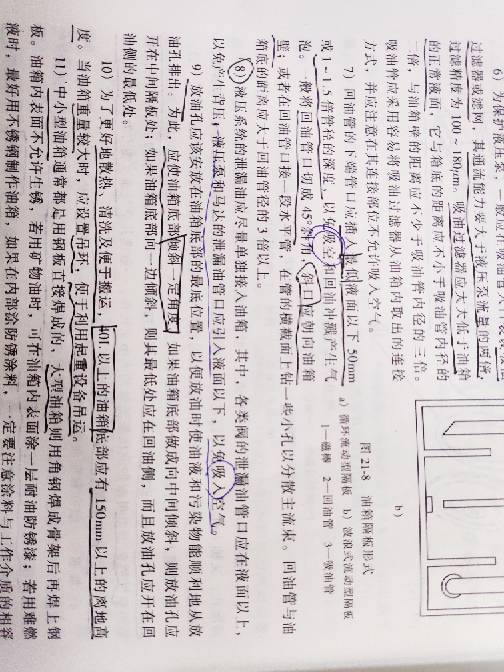 6）为保护液压泵，一般应在吸油管
过滤器或滤网，其通流能力要大于液压泵流量的两倍，
过滤精度为100～180μm。吸油过滤器应大大低于油箱
的正常液面，它与箱底的距离应不小于吸油管内径的
二倍，与油箱壁的距离应不少于吸油管内径的三倍。
吸油管应采用容易将吸油过滤器从油箱内取出的连接
方式，并应注意在其连接部位不允许吸入空气。
7）回油管的下端管口应插入最低液面以下50mm
或1～1.5倍管径的深度，以免吸空和回油冲溅产生气
泡。一般将回油管口切成45°斜角，斜口应朝向油箱
壁；或者在回油管口接一段水平管，在管的横截面上钻一些小孔以分散主流束。回油管与油
箱底的距离应大于回油管径的3倍以上。
b）
图21-8 油箱隔板形式
a）循环流动型隔板 b）波浪式流动型隔板
1—磁棒 2—回油管 3—吸油管
8）液压系统的泄漏油应尽量单独接入油箱，其中，各类阀的泄漏油管口应在液面以上，
以免产生背压；液压泵和马达的泄漏油管口应引入液面以下，以免吸入空气。
9）放油孔应该安放在油箱底部的最低位置，以便放油时使油液和污染物能顺利地从放
油孔排出。为此，应使油箱底部倾斜一定角度，如果油箱底部做成向中间倾斜，则放油孔应
开在中间隔板处；如果油箱底部向一边倾斜，则其最低处应在回油侧，而且放油孔应开在回
油侧的最低处。
10）为了更好地散热、清洗及便于搬运，40l以上的油箱底部应有150mm以上的离地高
度。当油箱重量较大时，应设置吊环，便于利用起重设备吊运。
11）中小型油箱通常都是用钢板直接焊成的，大型油箱则用角钢焊成骨架后再焊上钢
板。油箱内表面不允许生锈，若用矿物油时，可在油箱内表面涂一层耐油防锈漆；若用难燃
液时，最好用不锈钢制作油箱，如果在内部涂防锈涂料，一定要注意涂料与工作介质的相容